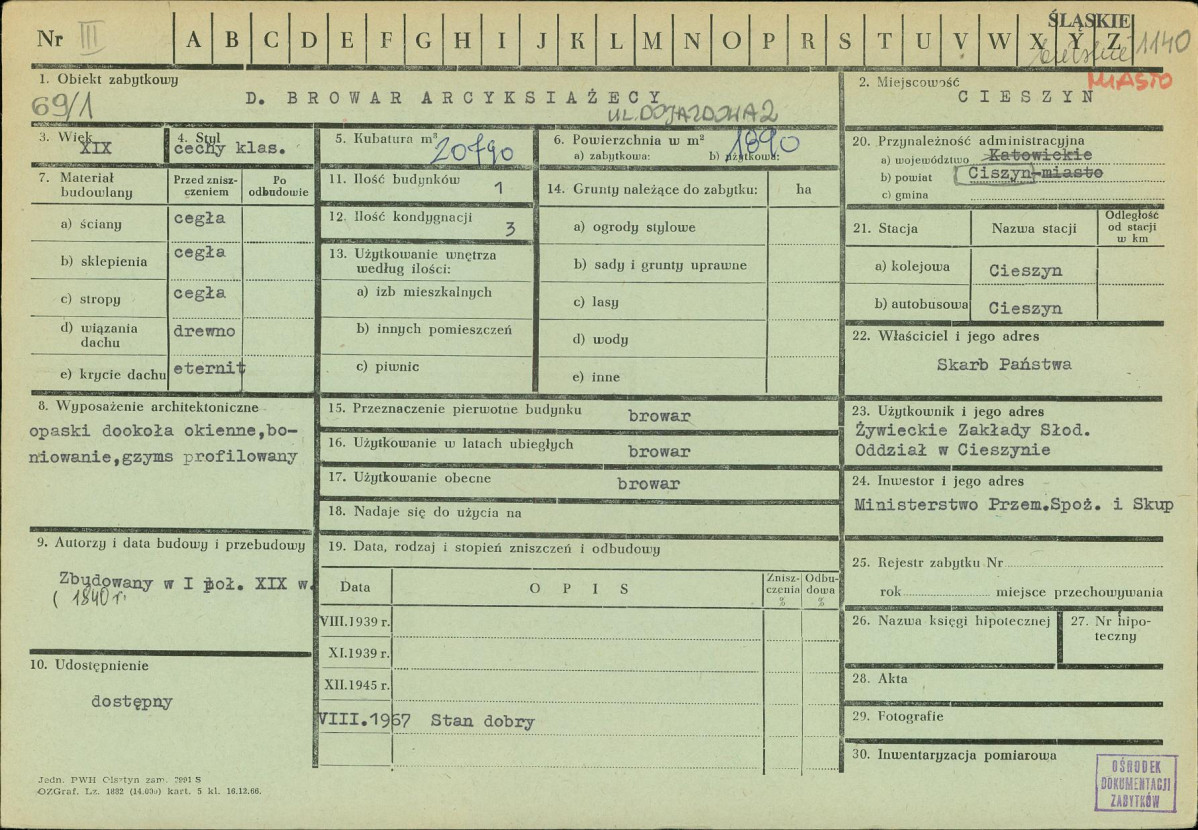 Nr III A B C D E F G H I J K L M N O P R S T U V W X Y Z
ŚLĄSKIE
1140
1. Obiekt zabytkowy
69/1
D. BROWAR ARCYKSIAŻECY
UL. DOJAZDOWA 2
2. Miejscowość
MIASTO
CIESZYN
3. Wiek
XIX
4. Styl
cechy klas.
5. Kubatura m³
20790
6. Powierzchnia w m²
1890
a) zabytkowa: b) użytkowa:
20. Przynależność administracyjna
a) województwo Katowickie
b) powiat Ciszyn-miasto
c) gmina
7. Materiał budowlany
Przed zniszczeniem
Po odbudowie
a) ściany cegła
b) sklepienia cegła
c) stropy cegła
d) wiązania dachu drewno
e) krycie dachu eternit
11. Ilość budynków 1
12. Ilość kondygnacji 3
13. Użytkowanie wnętrza
według ilości:
a) izb mieszkalnych
b) innych pomieszczeń
c) piwnic
14. Grunty należące do zabytku: ha
a) ogrody stylowe
b) sady i grunty uprawne
c) lasy
d) wody
e) inne
21. Stacja
Nazwa stacji
Odległość
od stacji
w km
a) kolejowa Cieszyn
b) autobusowa Cieszyn
22. Właściciel i jego adres
Skarb Państwa
8. Wyposażenie architektoniczne
opaski dookoła okienne,bo-
niowanie,gzyms profilowany
15. Przeznaczenie pierwotne budynku browar
16. Użytkowanie w latach ubiegłych browar
17. Użytkowanie obecne browar
18. Nadaje się do użycia na
23. Użytkownik i jego adres
Żywieckie Zakłady Słod.
Oddział w Cieszynie
24. Inwestor i jego adres
Ministerstwo Przem.Spoż. i Skup
9. Autorzy i data budowy i przebudowy
Zbudowany w I poł. XIX w.
( 1840 r.
19. Data, rodzaj i stopień zniszczeń i odbudowy
Data
OPIS
Zniszczenia %
Odbudowa %
VIII.1939 r.
XI.1939 r.
XII.1945 r.
VIII.1967 Stan dobry
25. Rejestr zabytku Nr
rok miejsce przechowywania
26. Nazwa księgi hipotecznej
27. Nr hipoteczny
10. Udostępnienie
dostępny
28. Akta
29. Fotografie
30. Inwentaryzacja pomiarowa
OŚRODEK
DOKUMENTACJI
ZABYTKÓW
Jedn. PWH Olsztyn zam. 2991 S
OZGraf. Lz. 1882 (14.000) kart. 5 kl. 16.12.66.